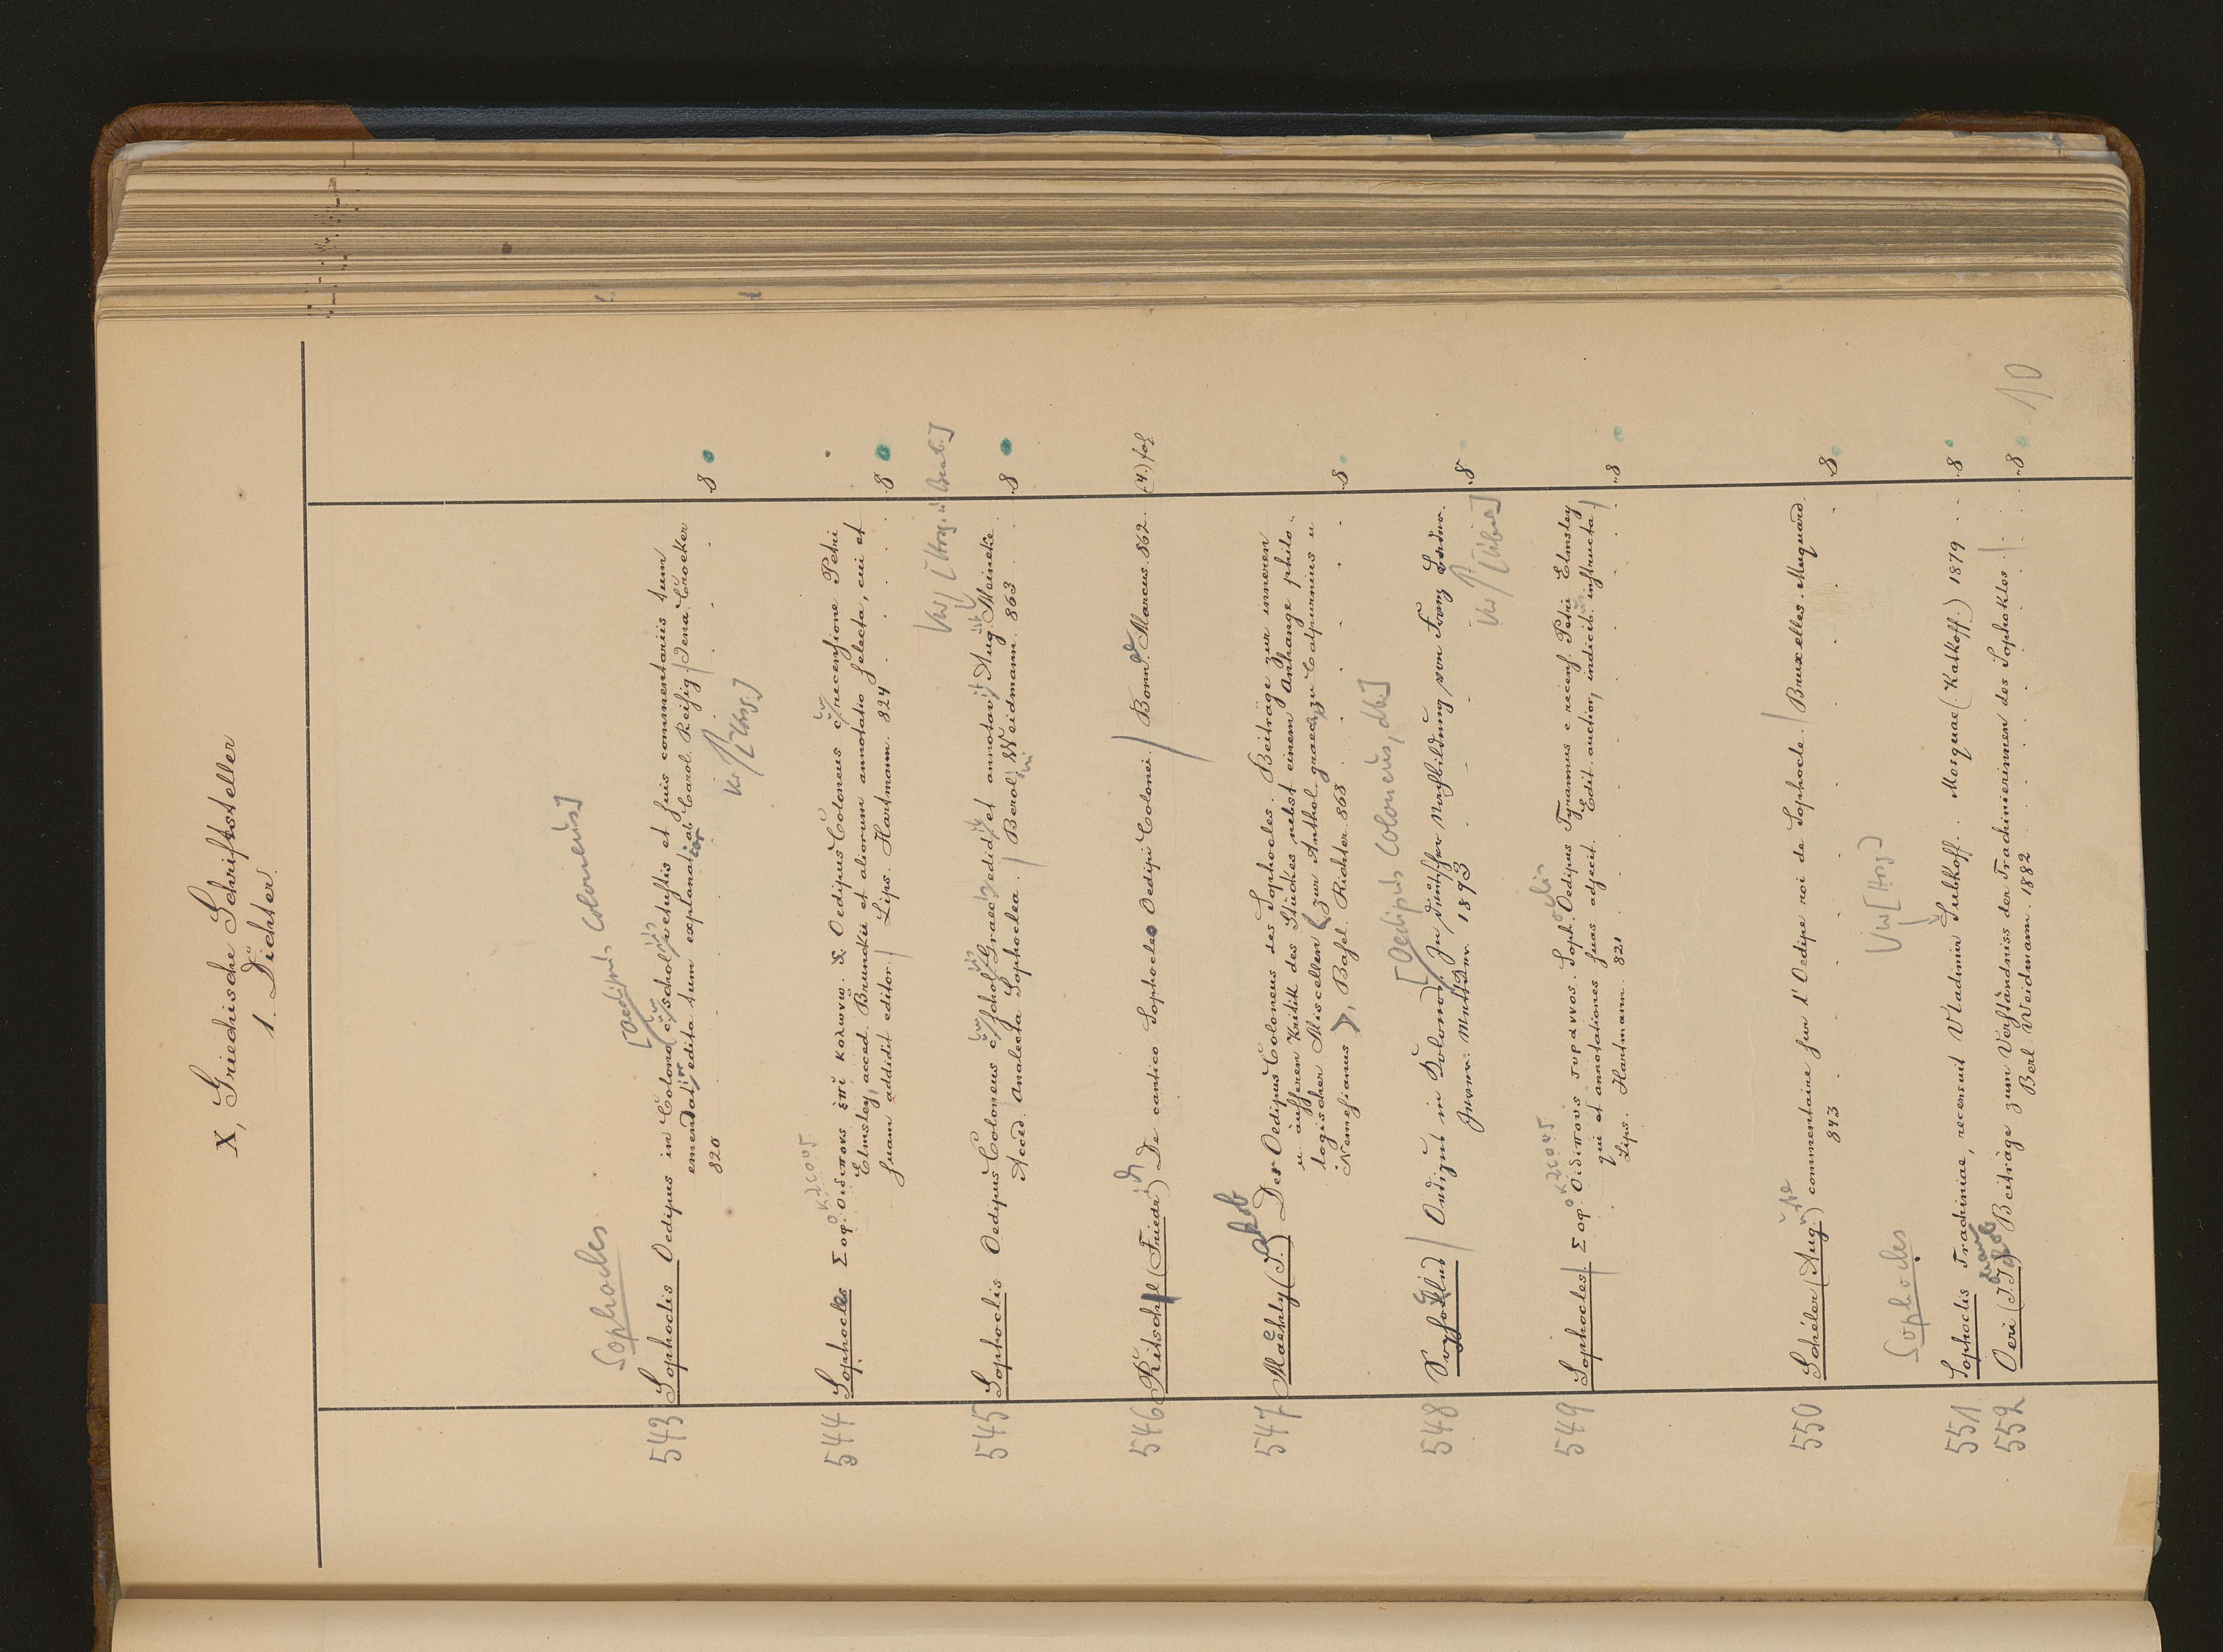 X, Griechische Schriftsteller
1. Dichter.
Sophocles [Oedipus Coloneus]
543 Sophoclis Oedipus in Colono c. schol. vetustis et suis commentariis tum
emendat. edita tum explanat. ab Carol. Reisig / Jena. Croeker
820 . . . . 8
Vw [Hrsg.]
544 Sophocles Σοφοκλεους Οιδιπους ἐπὶ κολωνω. S. Oedipus Coloneus e recensione Petri
Elmsley, acced. Brunckii et aliorum annotatio selecta, cui et
suam addidit editor. / Lips. Hartmann. 824 . . . . 8
Vw [Hrsg. u. Bearb.]
545 Sophoclis Oedipus Coloneus c. schol. Graec. edidit et annotavit Aug. Meineke.
Acced. Analecta Sophoclea. / Berol. Weidmann. 863 . . 8
546 Ritschl (Friedr.) De cantico Sophocleo Oedipi Colonei / Bonnae. Marcus. 862. (4.) fol.
547 Maehly (J.) Der Oedipus Coloneus des Sophocles. Beiträge zur inneren
u. äusseren Kritik des Stückes nebst einem Anhange philo-
logischer Miscellen (zur Anthol. graec., zu Calpurnius u
Nemesianus), Basel. Richter. 868 . . . . 8
[Oedipus Coloneus, dt.]
548 Sophokles / Oedipus in Kolonos. In deutscher Nachbildung von Franz
1893 . . . 8
Vw [Übers.]
549 Sophocles. / Σοφοκλεους Οιδιπους τυραννος. Sophoclis Oedipus Tyrannus e recens. Petri Elmsley
qui et annotationes suas adjecit. Edit. auctior, indicibus instructa /
Lips. Hartmann. 821 . . . . 8
550 Schéler (Auguste) commentaire sur l'Oedipe roi de Sophocle. / Bruxelles. Muquard.
843 . . . . 8
Vw [Hrsg.]
Sophocles
551 Sophoclis Trachiniae, recensuit Vladimir Subkoff. . Mosquae (Katkoff.) 1879 . . 8
552 Oeri (J. J.) Beiträge zum Verständniss der Trachinierinnen des Sophokles. /
Berl. Weidmann. 1882 . . . . 8
10